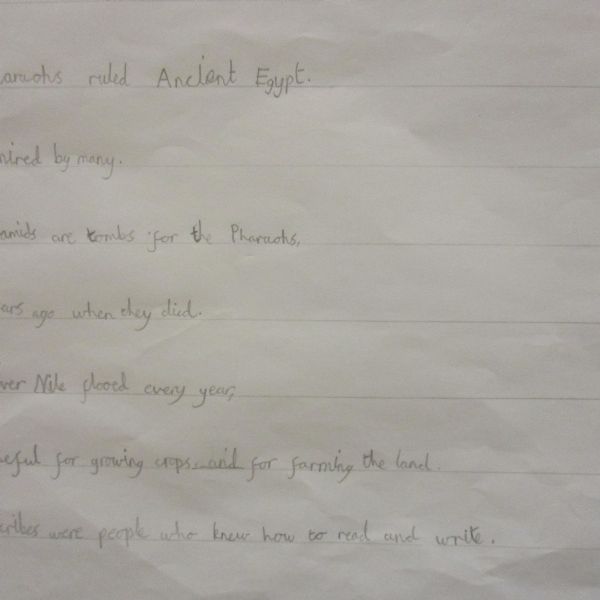 araohs ruled Ancient Egypt.
mired by many.
amids are tombs for the Pharaohs,
ars ago when they died.
ver Nile flooed every year,
eful for growing crops and for farming the land.
cribes were people who knew how to read and write.